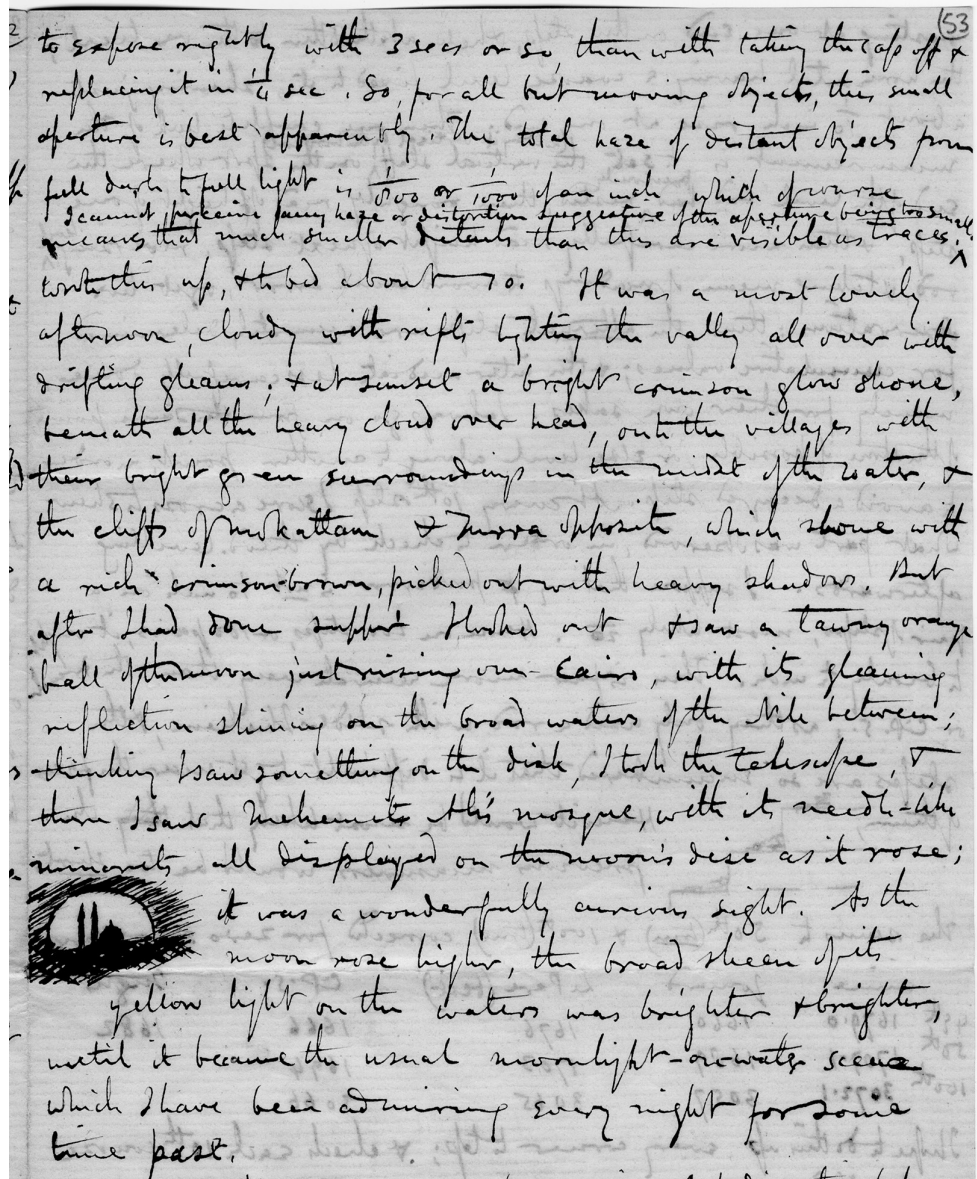 (53
to expose rightly with 3 secs or so, than with taking the cap off &
replacing it in 1/4 sec. So, for all but moving objects, this small
aperture is best apparently. The total haze of distant objects from
full dark to full light is 1/800 or 1/1000 of an inch which of course
I cannot perceive any haze or distortion suggestive of the aperture being too small.
means that much smaller details than this are visible as traces.
wrote this up, & to bed about 10. It was a most lovely
afternoon, cloudy with rifts lighting the valley all over with
drifting gleams; & at sunset a bright crimson glow shone,
beneath all the heavy cloud over head, on the villages with
their bright green surroundings in the midst of the water, &
the cliffs of Mokattam & Turra opposite, which shone with
a rich crimson-brown, picked out with heavy shadows. But
after I had done supper I looked out & saw a tawny orange
ball of the moon just rising over Cairo, with its gleaming
reflection shining on the broad waters of the Nile between;
thinking I saw something on the disk, I took the telescope, &
then I saw Mehemet Ali's mosque, with its needle-like
minarets all displayed on the moon's disc as it rose;
it was a wonderfully curious sight. As the
moon rose higher, the broad sheen of its
yellow light on the waters was brighter & brighter,
until it became the usual moonlight-on-water scene
which I have been admiring every night for some
time past.